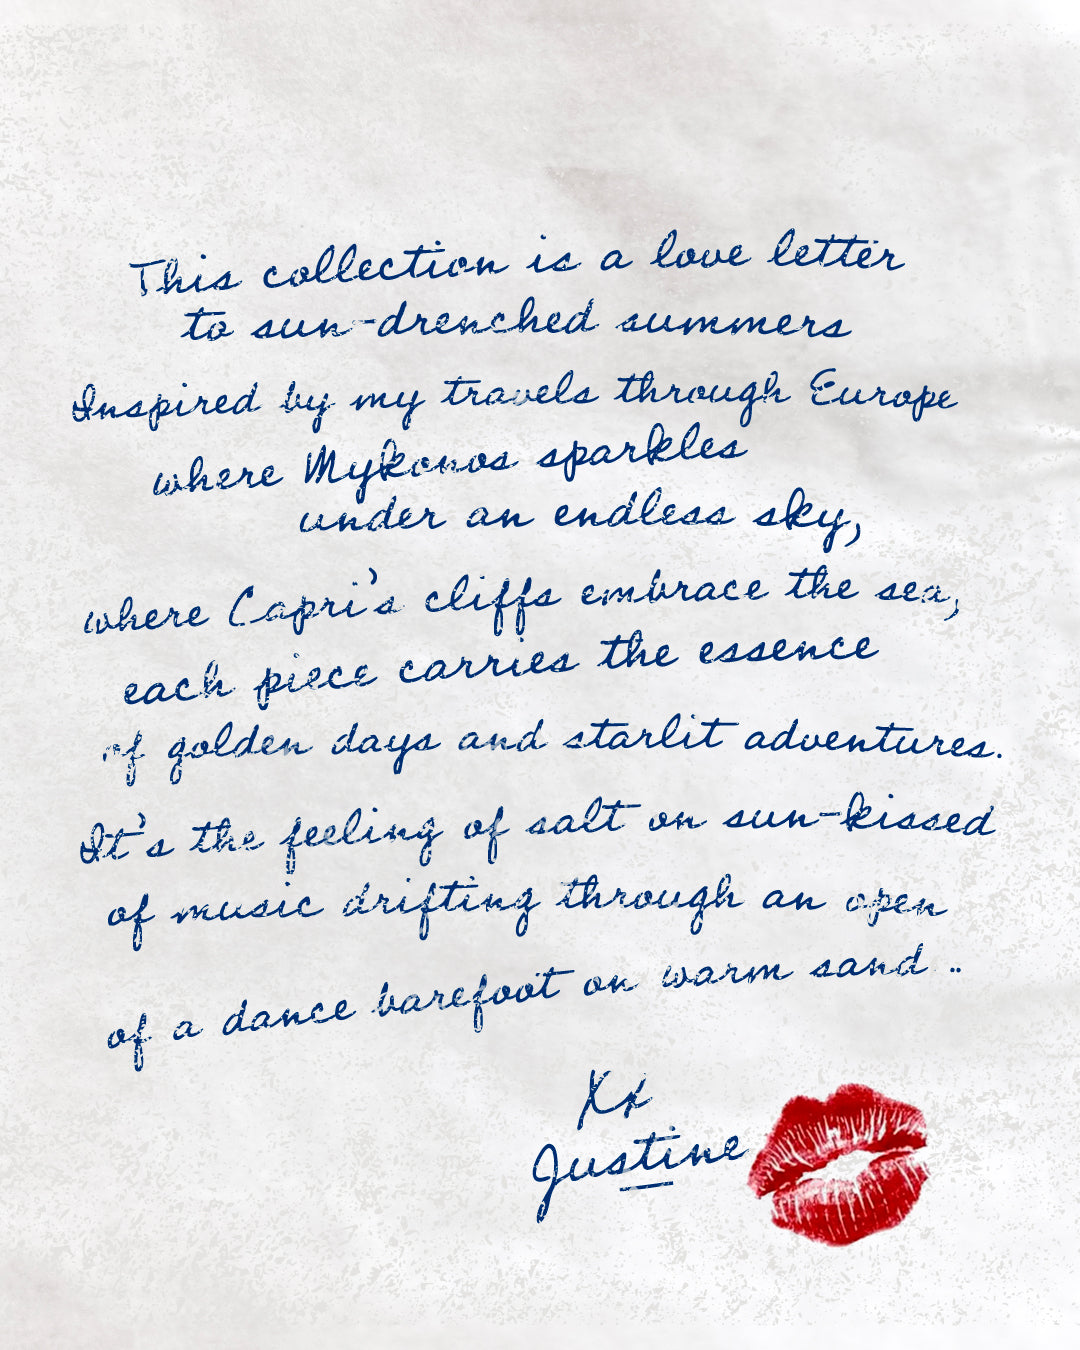 This collection is a love letter
to sun-drenched summers
Inspired by my travels through Europe
where Mykonos sparkles
under an endless sky,
where Capri's cliffs embrace the sea,
each piece carries the essence
of golden days and starlit adventures.
It's the feeling of salt on sun-kissed
of music drifting through an open
of a dance barefoot on warm sand ..
Xx
Justine